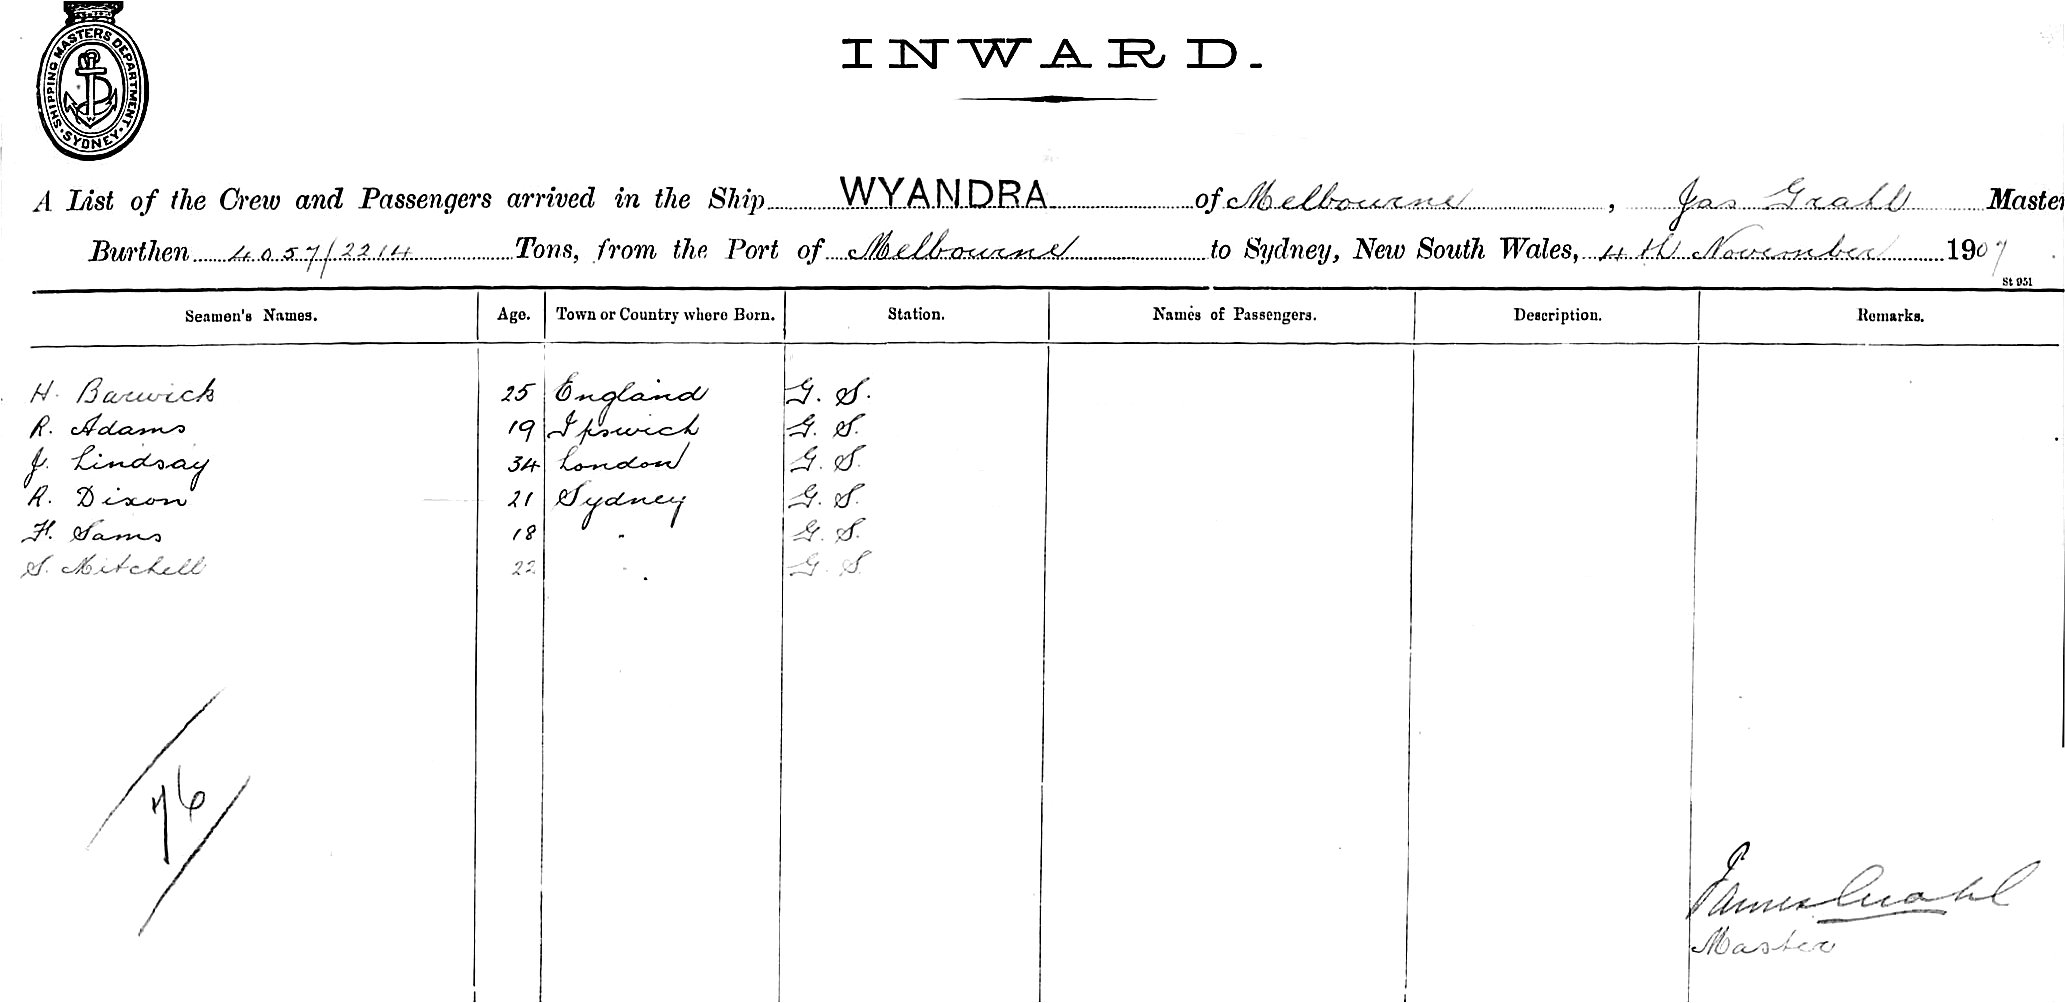 SHIPPING MASTERS DEPARTMENT · SYDNEY ·
INWARD.
A List of the Crew and Passengers arrived in the Ship WYANDRA of Melbourne, Jas Grahl Master
Burthen 4057/2214 Tons, from the Port of Melbourne to Sydney, New South Wales, 4th November 1907
St 951
Seamen's Names. Age. Town or Country where Born. Station. Names of Passengers. Description. Remarks.
H. Barwick 25 England G. S.
R. Adams 19 Ipswich G. S.
J. Lindsay 34 London G. S.
R. Dixon 21 Sydney G. S.
F. Sams 18 " G. S.
S. Mitchell 22 " G. S.
76
James Grahl
Master